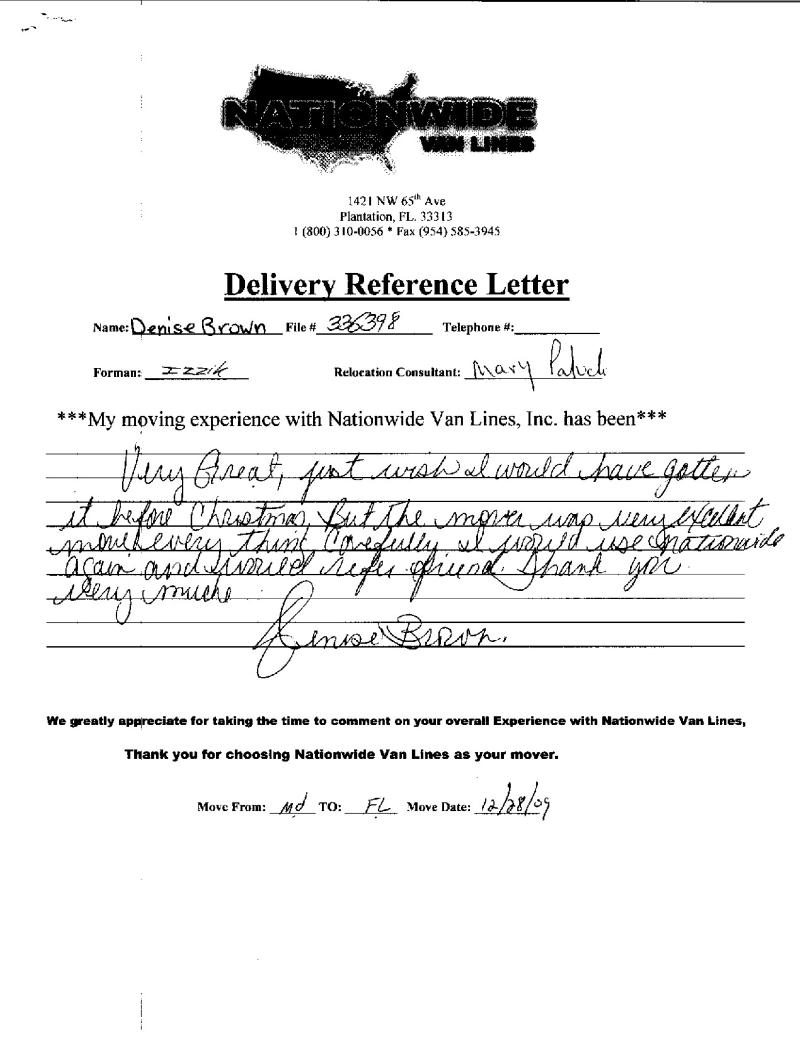 NATIONWIDE
VAN LINES
1421 NW 65th Ave
Plantation, FL. 33313
1 (800) 310-0056 * Fax (954) 585-3945
Delivery Reference Letter
Name: Denise Brown File # 336398 Telephone #:
Forman: Izzik Relocation Consultant: Mary
***My moving experience with Nationwide Van Lines, Inc. has been***
Very Great, just wish I would have gotten
it before Christmas, But the mover was very excellent
move every thing Carefully I would use nationwide
again and would refer friend. Thank you
very muche
Denise Brown.
We greatly appreciate for taking the time to comment on your overall Experience with Nationwide Van Lines,
Thank you for choosing Nationwide Van Lines as your mover.
Move From: Md TO: FL Move Date: 12/28/09